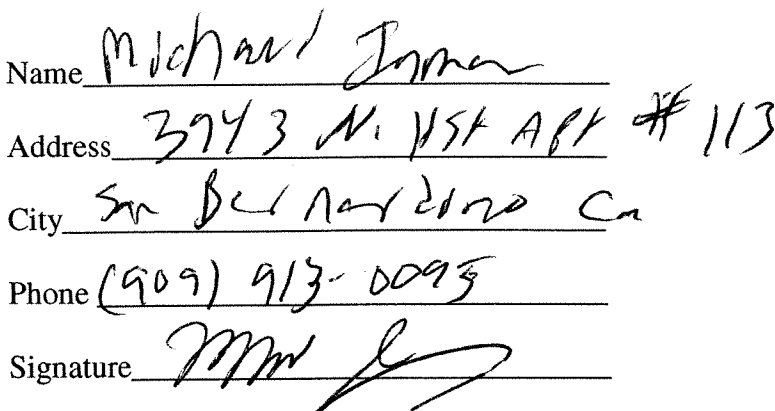 Name Michael Inman
Address 3943 N. H St Apt # 113
City San Bernardino Ca
Phone (909) 913-0095
Signature